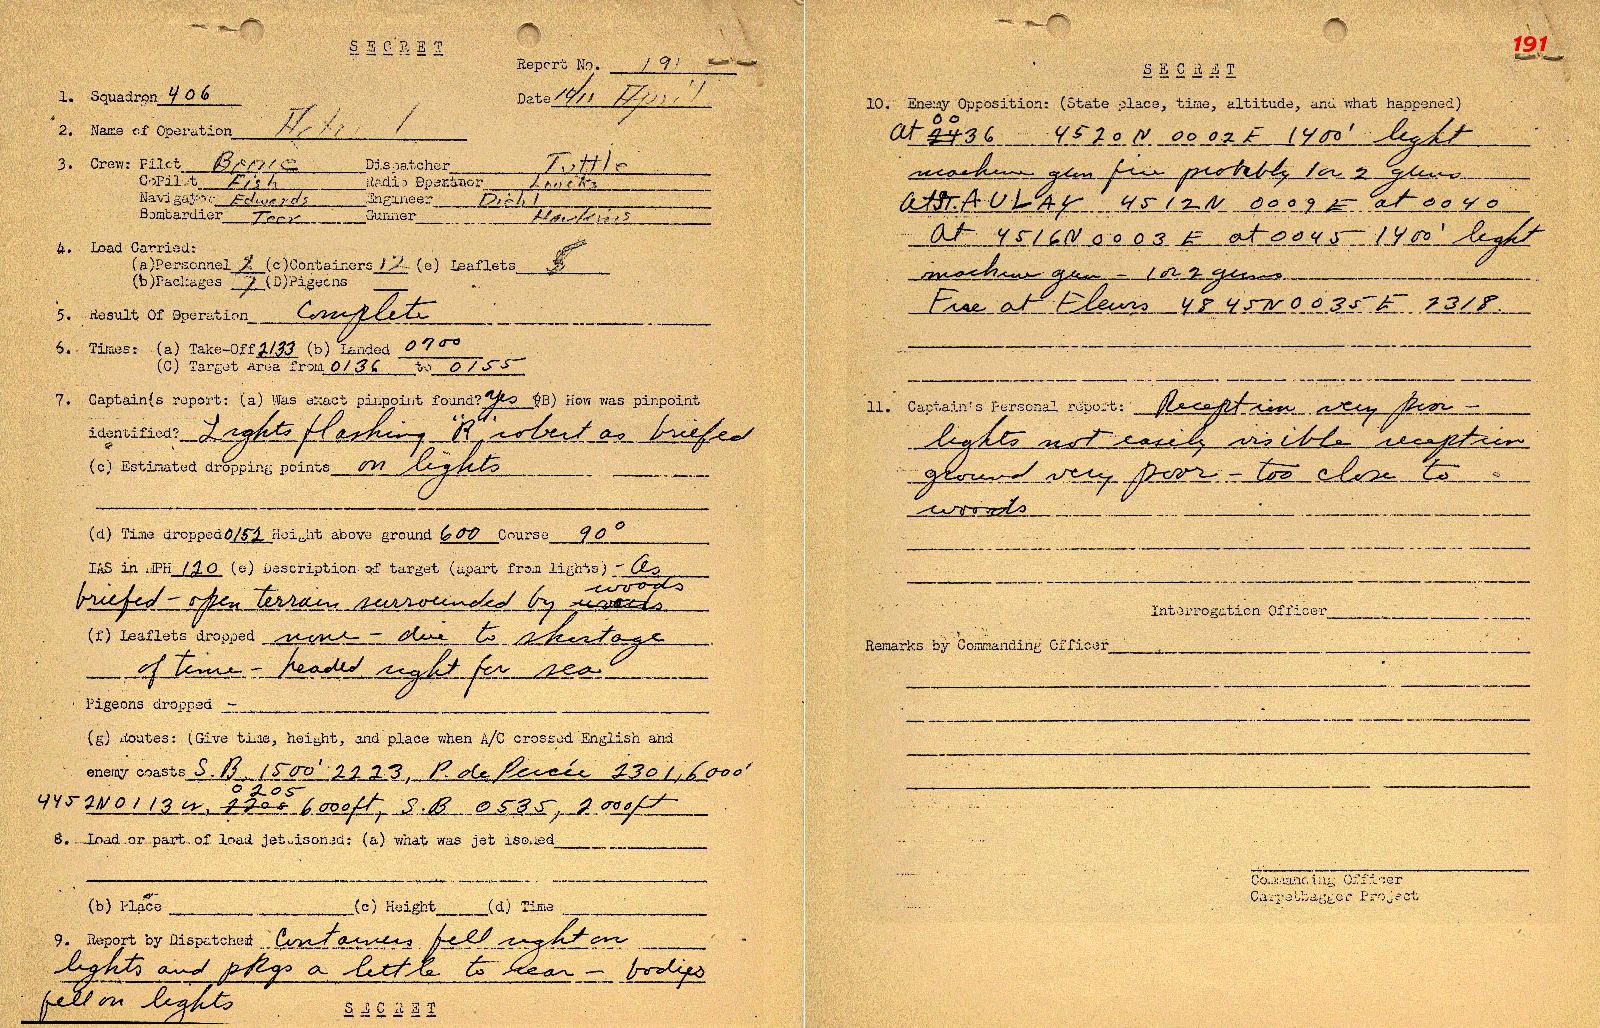 SECRET
Report No. 191
1. Squadron 406
Date 10/11 April
2. Name of Operation
3. Crew: Pilot Dispatcher Tuttle
CoPilot Fish Radio Operator Loucks
Navigator Edwards Engineer Diehl
Bombardier Teer Gunner Hawkins
4. Load Carried:
(a)Personnel 2 (c)Containers 12 (e) Leaflets 8
(b)Packages 7 (D)Pigeons
5. Result Of Operation Complete
6. Times: (a) Take-Off 2133 (b) Landed 0700
(C) Target Area from 0136 to 0155
7. Captain's report: (a) Was exact pinpoint found? yes (B) How was pinpoint
identified? Lights flashing "R" robert as briefed
(c) Estimated dropping points on lights
(d) Time dropped 0152 Height above ground 600 Course 90°
IAS in MPH 120 (e) Description of target (apart from lights) - as
briefed - open terrain surrounded by woods
(f) Leaflets dropped none - due to shortage
of time - headed right for sea
Pigeons dropped -
(g) Routes: (Give time, height, and place when A/C crossed English and
enemy coasts S.B. 1500' 2223, P. de Percée 2301, 6000'
4452N0113W, 0205 6000ft, S.B 0535, 2000ft
8. Load or part of load jettisoned: (a) what was jettisoned
(b) Place (c) Height (d) Time
9. Report by Dispatcher Containers fell right on
lights and pkgs a little to rear - bodies
fell on lights
SECRET
191
SECRET
10. Enemy Opposition: (State place, time, altitude, and what happened)
At 0036 4520N 0002E 1400' light
machine gun fire probably 1 or 2 guns
At ST. AULAY 4512N 0009E at 0040
at 4516N 0003E at 0045 1400' light
machine gun - 1 or 2 guns
Fire at Flers 4845N0035E 2318.
11. Captain's Personal report: Reception very poor -
lights not easily visible reception
ground very poor - too close to
woods
Interrogation Officer
Remarks by Commanding Officer
Commanding Officer
Carpetbagger Project